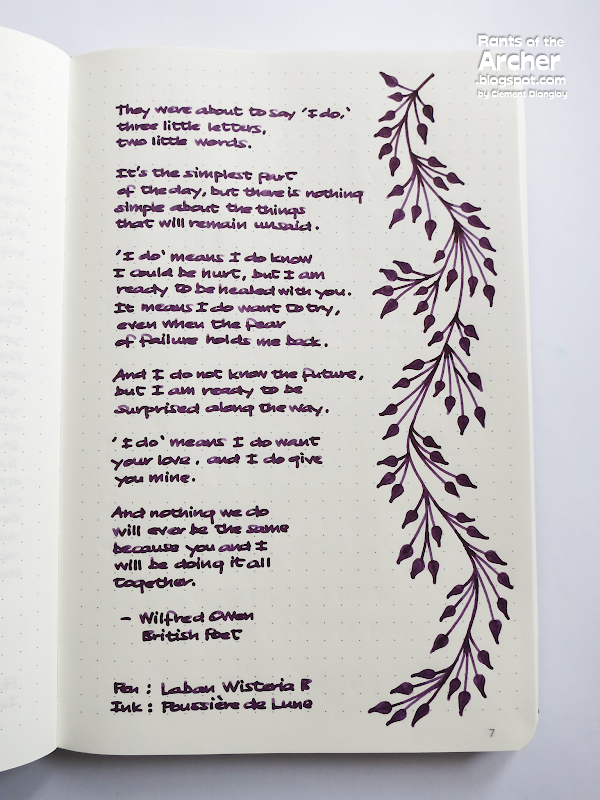 Rants of the
Archer
.blogspot.com
by Clement Dionglay
They were about to say 'I do,'
three little letters,
two little words.
It's the simplest part
of the day, but there is nothing
simple about the things
that will remain unsaid.
'I do' means I do know
I could be hurt, but I am
ready to be healed with you.
It means I do want to try,
even when the fear
of failure holds me back.
And I do not know the future,
but I am ready to be
surprised along the way.
'I do' means I do want
your love, and I do give
you mine.
And nothing we do
will ever be the same
because you and I
will be doing it all
together.
- Wilfred Owen
British Poet
Pen : Laban Wisteria B
Ink : Poussière de Lune
7